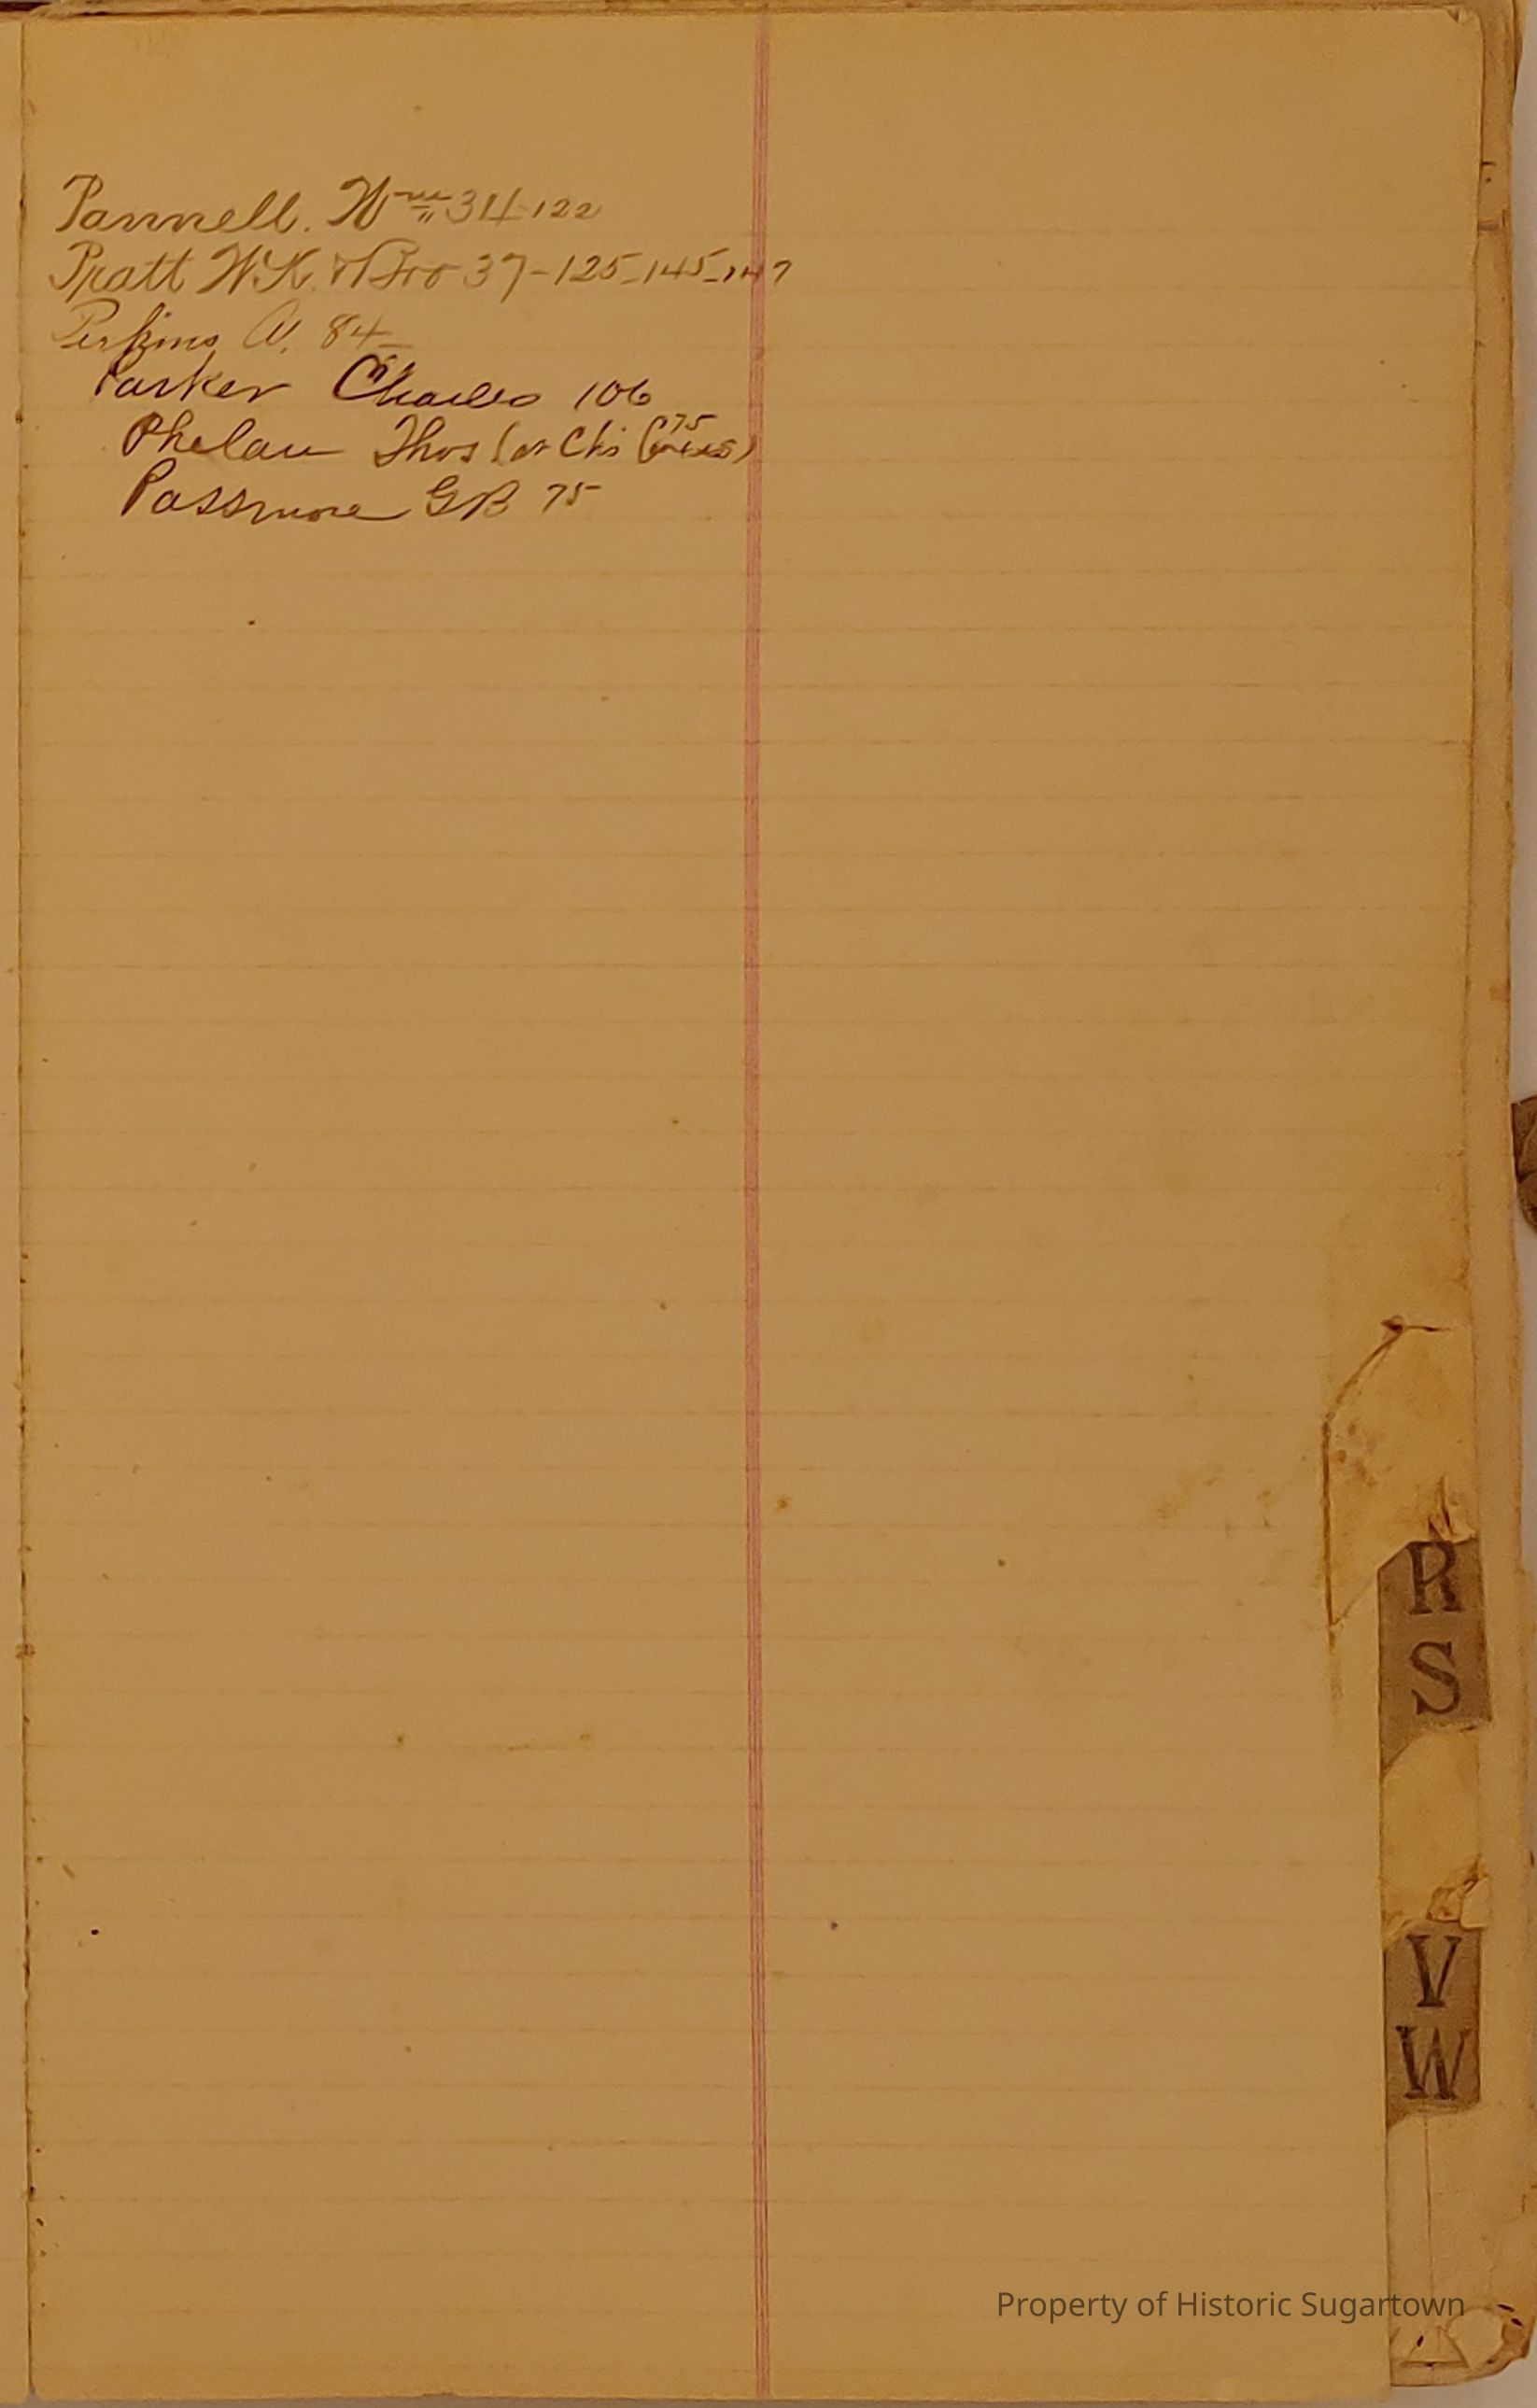 Pannell. Wm 34-122
Pratt W.K. & Bro 37-125-145-147
Perkins A. 84
Parker Charles 106
Phelan Thos (at Chs 75
Passmore GB 75
R
S
V
W
Property of Historic Sugartown